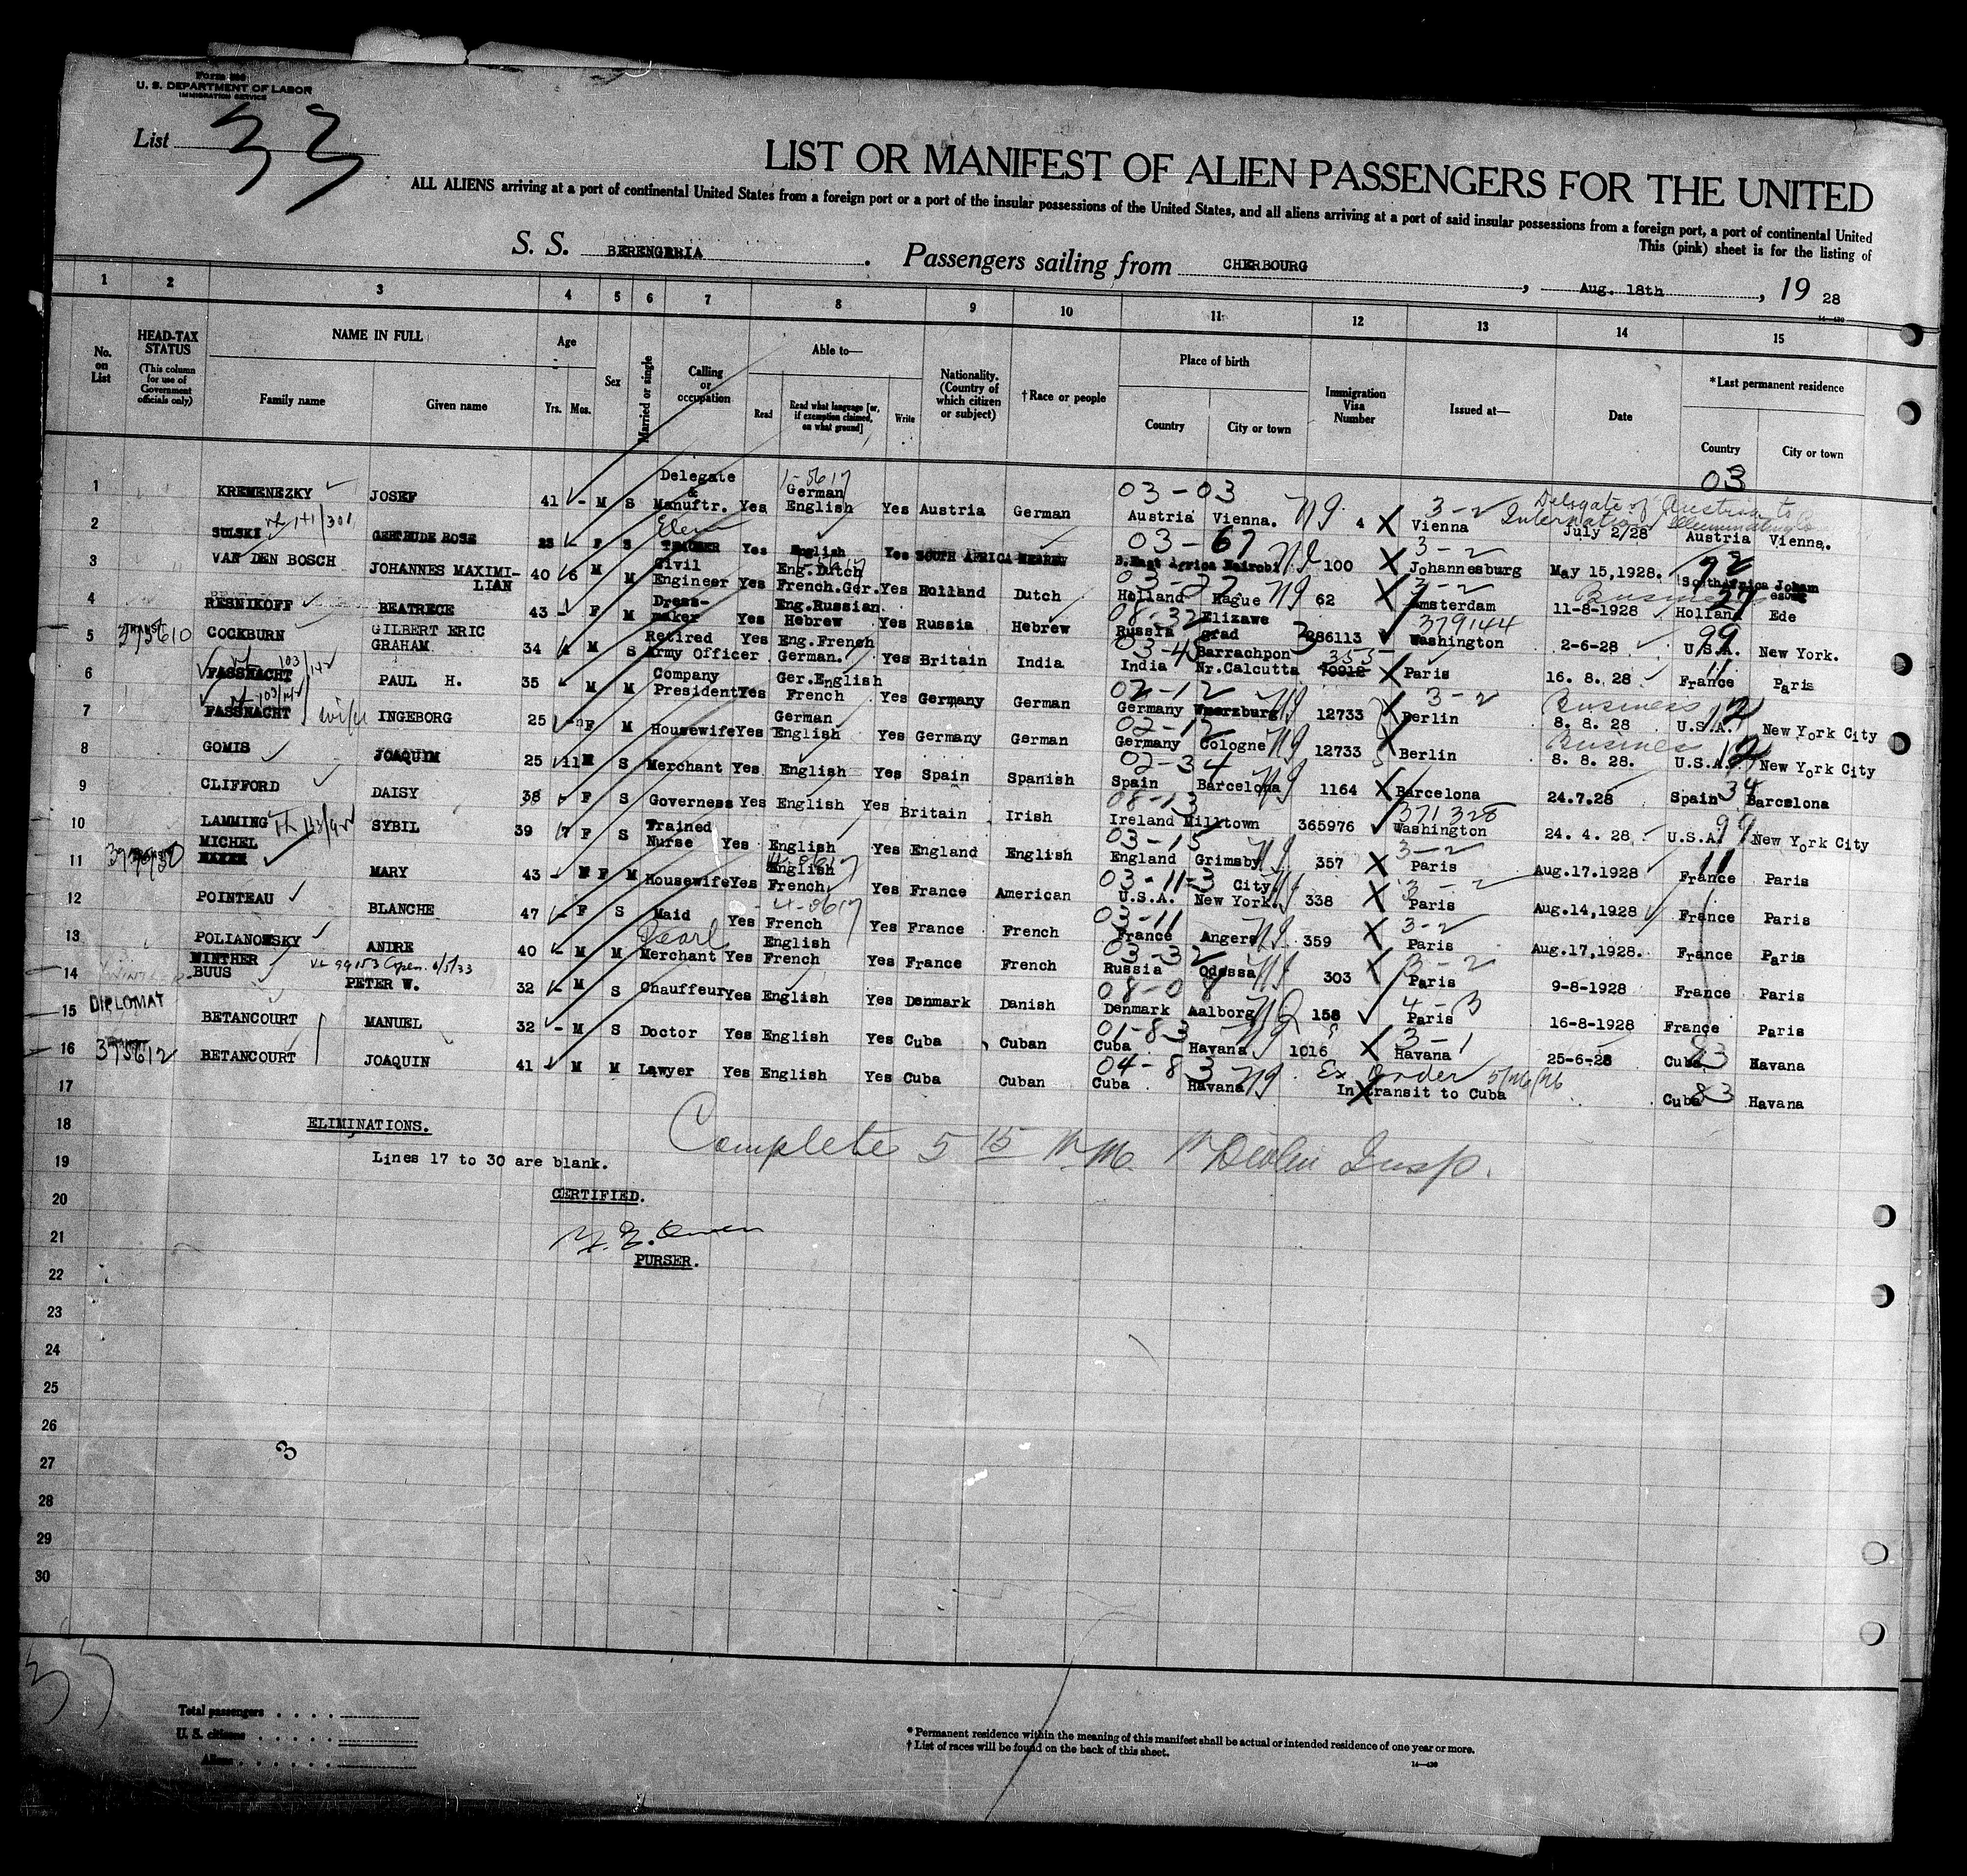 Form 500
U. S. DEPARTMENT OF LABOR
IMMIGRATION SERVICE
List 33
LIST OR MANIFEST OF ALIEN PASSENGERS FOR THE UNITED
ALL ALIENS arriving at a port of continental United States from a foreign port or a port of the insular possessions of the United States, and all aliens arriving at a port of said insular possessions from a foreign port, a port of continental United
This (pink) sheet is for the listing of
S. S. BERENGERIA. Passengers sailing from CHERBOURG, Aug. 18th, 19 28
14—430
1 2 3 4 5 6 7 8 9 10 11 12 13 14 15
No. on List
HEAD-TAX STATUS (This column for use of Government officials only)
NAME IN FULL
Family name Given name
Age
Yrs. Mos.
Sex
Married or single
Calling or occupation
Able to—
Read Read what language [or, if exemption claimed, on what ground] Write
Nationality. (Country of which citizen or subject)
†Race or people
Place of birth
Country City or town
Immigration Visa Number
Issued at—
Date
*Last permanent residence
Country City or town
03
1 KREMENEZKY JOSEF 41 - M S Delegate & Manuftr. Yes 1-5617 German English Yes Austria German 03-03 Austria Vienna. 4 X 3-2 Vienna Delegate of Austria to International Illuminating July 2/28 Austria Vienna.
2 SULSKI GERTRUDE ROSE 23 F S TEACHER Yes English Yes SOUTH AFRICA HEBREW 03-67 B.East Africa Nairobi 100 X 3-2 Johannesburg May 15,1928. South Africa Johan esbug
3 VAN DEN BOSCH JOHANNES MAXIMI-LIAN 40 6 M M Civil Engineer Yes Eng.Dutch French.Ger. Yes Holland Dutch 03-27 Holland Hague 62 X 3-2 Amsterdam Business 11-8-1928 Holland 27 Ede
4 RESNIKOFF BEATRECE 43 - F M Dress-maker Yes Eng.Russian Hebrew Yes Russia Hebrew 08-32 Russia Elizawe grad 3286113 379144 Washington 2-6-28 99 U.S.A. New York.
5 TRANSIT 373610 COCKBURN GILBERT ERIC GRAHAM 34 4 M S Retired Army Officer Yes Eng.French German. Yes Britain India 03-45 India Barrachpon Nr.Calcutta 353 70912 X Paris 16. 8. 28 11 France Paris
6 FASSNACHT PAUL H. 35 M M Company President Yes Ger.English French Yes Germany German 02-12 Germany Wuerzburg 12733 3-2 Berlin Business 8. 8. 28 U.S.A. 12 New York City
7 FASSNACHT wife INGEBORG 25 F M Housewife Yes German English Yes Germany German 02-12 Germany Cologne 12733 Berlin Business 8. 8. 28. U.S.A. 12 New York City
8 GOMIS JOAQUIM 25 11 M S Merchant Yes English Yes Spain Spanish 02-34 Spain Barcelona 1164 X Barcelona 24.7.28 Spain 34 Barcelona
9 CLIFFORD DAISY 38 F S Governess Yes English Yes Britain Irish 08-13 Ireland Milltown 365976 371328 Washington 24. 4. 28 U.S.A 99 New York City
10 LAMMING SYBIL 39 7 F S Trained Nurse Yes English Yes England English 03-15 England Grimsby 357 X 3-2 Paris Aug.17.1928 11 France Paris
11 MICHEL MARY 43 - F M Housewife Yes English French Yes France American 03-11-3 U.S.A. New York. City 338 X 3-2 Paris Aug.14,1928 France Paris
12 POINTEAU BLANCHE 47 - F S Maid Yes French Yes France French 03-11 France Angers 359 X 3-2 Paris Aug.17,1928. France Paris
13 POLIANOWSKY ANDRE 40 - M M Pearl Merchant Yes English French Yes France French 03-32 Russia Odessa 303 X 3-2 Paris 9-8-1928 France Paris
14 WINTHER BUUS PETER W. 32 - M S Chauffeur Yes English Yes Denmark Danish 08-08 Denmark Aalborg 158 4-3 Paris 16-8-1928 France Paris
15 DIPLOMAT BETANCOURT MANUEL 32 - M S Doctor Yes English Yes Cuba Cuban 01-83 Cuba Havana 1016 X 3-1 Havana 25-6-28 Cuba 83 Havana
16 373612 BETANCOURT JOAQUIN 41 M M Lawyer Yes English Yes Cuba Cuban 04-83 Cuba Havana Ex Order 5/26/26 In transit to Cuba Cuba 83 Havana
17
18 ELIMINATIONS. Complete 5 15 Insp.
19 Lines 17 to 30 are blank.
20 CERTIFIED.
21
PURSER.
22
23
24
25
26
3
27
28
29
30
Total passengers
U. S. citizens
Aliens
* Permanent residence within the meaning of this manifest shall be actual or intended residence of one year or more.
† List of races will be found on the back of this sheet.
14—430